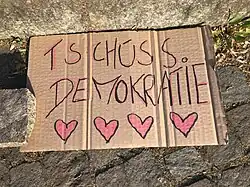 TSCHÜSS.
DEMOKRATIE